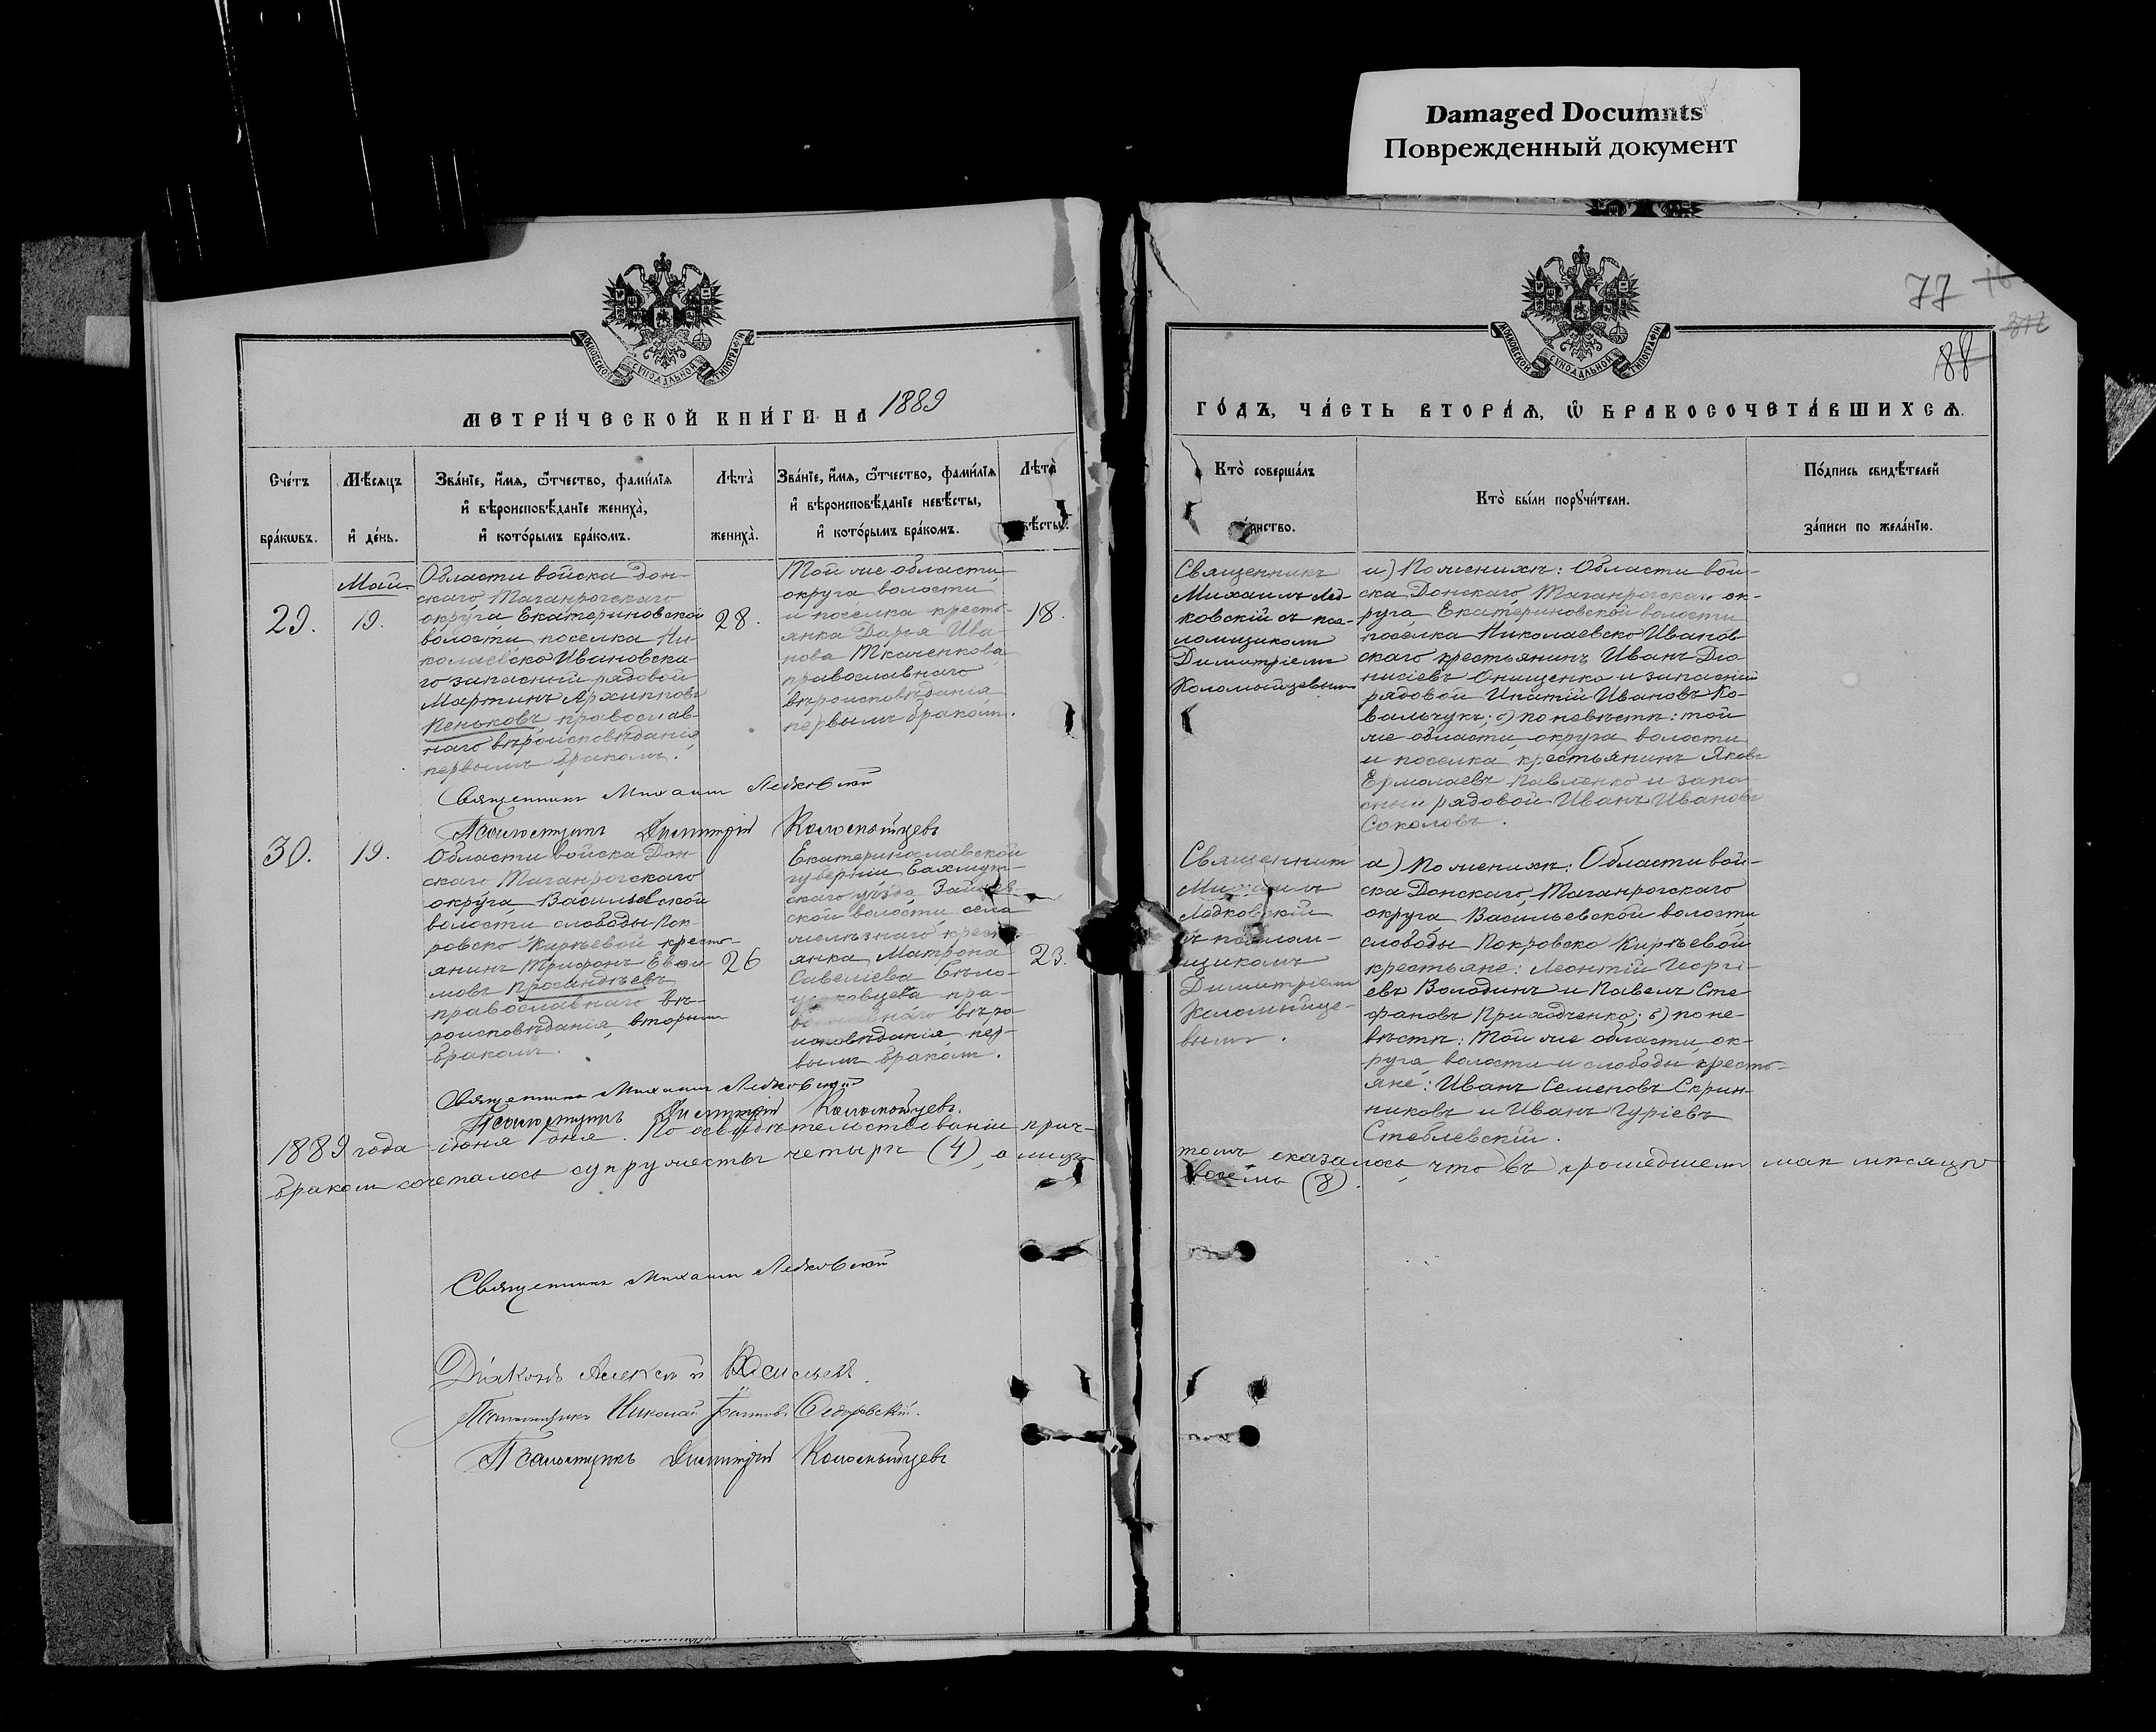 Damaged Documnts
Поврежденный документ
77
88
МОСКОВСКОЙ СУНОДАЛЬНОЙ ТИПОГРАФІИ
МОСКОВСКОЙ СУНОДАЛЬНОЙ ТИПОГРАФІИ
МЕТРИ́ЧЕСКОЙ КНИ́ГИ НА 1889
ГО́ДЪ, ЧА́СТЬ ВТОРА́Ѧ, Ѡ҆ БРАКОСОЧЕТА́ВШИХСѦ.
Сче́тъ
бра́кѡвъ.
Мѣ́сяцъ
и҆ де́нь.
Зва́нїе, и҆́мѧ, ѻ҆́тчество, фами́лїѧ
и҆ вѣроисповѣ́данїе жениха̀,
и҆ кото́рымъ бра́комъ.
Лѣта̀
жениха̀.
Зва́нїе, и҆́мѧ, ѻ҆́тчество, фами́лїѧ
и҆ вѣроисповѣ́данїе невѣ́сты,
и҆ кото́рымъ бра́комъ.
Лѣта̀
вѣ́сты.
Кто̀ соверша́лъ
та́инство.
Кто̀ бы́ли порꙋчи́тели.
По́дпись свидѣ́телей
за́писи по жела́нїю.
29.
Май.
19.
Области войска Дон-
скаго Таганрогскаго
округа Екатериновской
волости поселка Ни-
колаевско Ивановска-
го запасный рядовой
Мартинъ Архиповъ
Пеньковъ, православ-
наго вѣроисповѣданія
первымъ бракомъ.
28.
Той же области,
округа волости
и поселка кресть-
янка Дарья Ива-
нова Ткаченкова,
православнаго
вѣроисповѣданія
первымъ бракомъ.
18.
Священникъ
Михаилъ Лед-
ковскій съ пса-
ломщикомъ
Димитріемъ
Коломыйцевымъ
а) По женихѣ: Области вой-
ска Донскаго, Таганрогскаго ок-
руга Екатериновской волости
поселка Николаевско Иванов-
скаго крестьянинъ Иванъ Діо-
нисіевъ Онищенко и запасный
рядовой Ипатій Ивановъ Ко-
вальчукъ; б) по невѣстѣ: той
же области, округа волости
и поселка, крестьянинъ Яковъ
Ермолаевъ Павленко и запа-
сный рядовой Иванъ Ивановъ
Соколовъ.
Священникъ Михаилъ Ледковскій
Псаломщикъ Димитрій Коломыйцевъ
30.
19.
Области войска Дон-
скаго Таганрогскаго
округа Васильевской
волости слободы Пок-
ровско-Кирѣевой кресть-
янинъ Трифонъ Евѳи-
мовъ Просандѣевъ
православнаго вѣ-
роисповѣданія, вторымъ
бракомъ.
26
Екатеринославской
губерніи, Бахмут-
скаго уѣзда, Зайцев-
ской волости села
Желѣзнаго кресть-
янка Матрона
Савеліева Бѣло-
церковцева пра-
вославнаго вѣро-
исповѣданія, пер-
вымъ бракомъ.
23.
Священникъ
Михаилъ
Ледковскій
съ псалом-
щикомъ
Димитріемъ
Коломыйце-
вымъ.
а) По женихѣ: Области вой-
ска Донскаго, Таганрогскаго
округа Васильевской волости
слободы Покровско Кирѣевой
крестьяне: Леонтій Георгі-
евъ Володинъ и Павелъ Сте-
фановъ Приходченко; б) по не-
вѣстѣ: Той же области, ок-
руга, волости и слободы кресть-
яне: Иванъ Семеновъ Скрин-
никовъ и Иванъ Гуріевъ
Стеблевскій.
Священникъ Михаилъ Ледковскій
Псаломщикъ Димитрій Коломыйцевъ.
1889 года іюня дня. По освидѣтельствованіи прич-
томъ оказалось, что въ прошедшемъ маѣ мѣсяцѣ
бракомъ сочеталось супружествъ четыре (4), а лицъ
восемь (8).
Священникъ Михаилъ Ледковскій
Діаконъ Алексѣй Васильевъ.
Псаломщикъ Николай Федоровскій.
Псаломщикъ Димитрій Коломыйцевъ